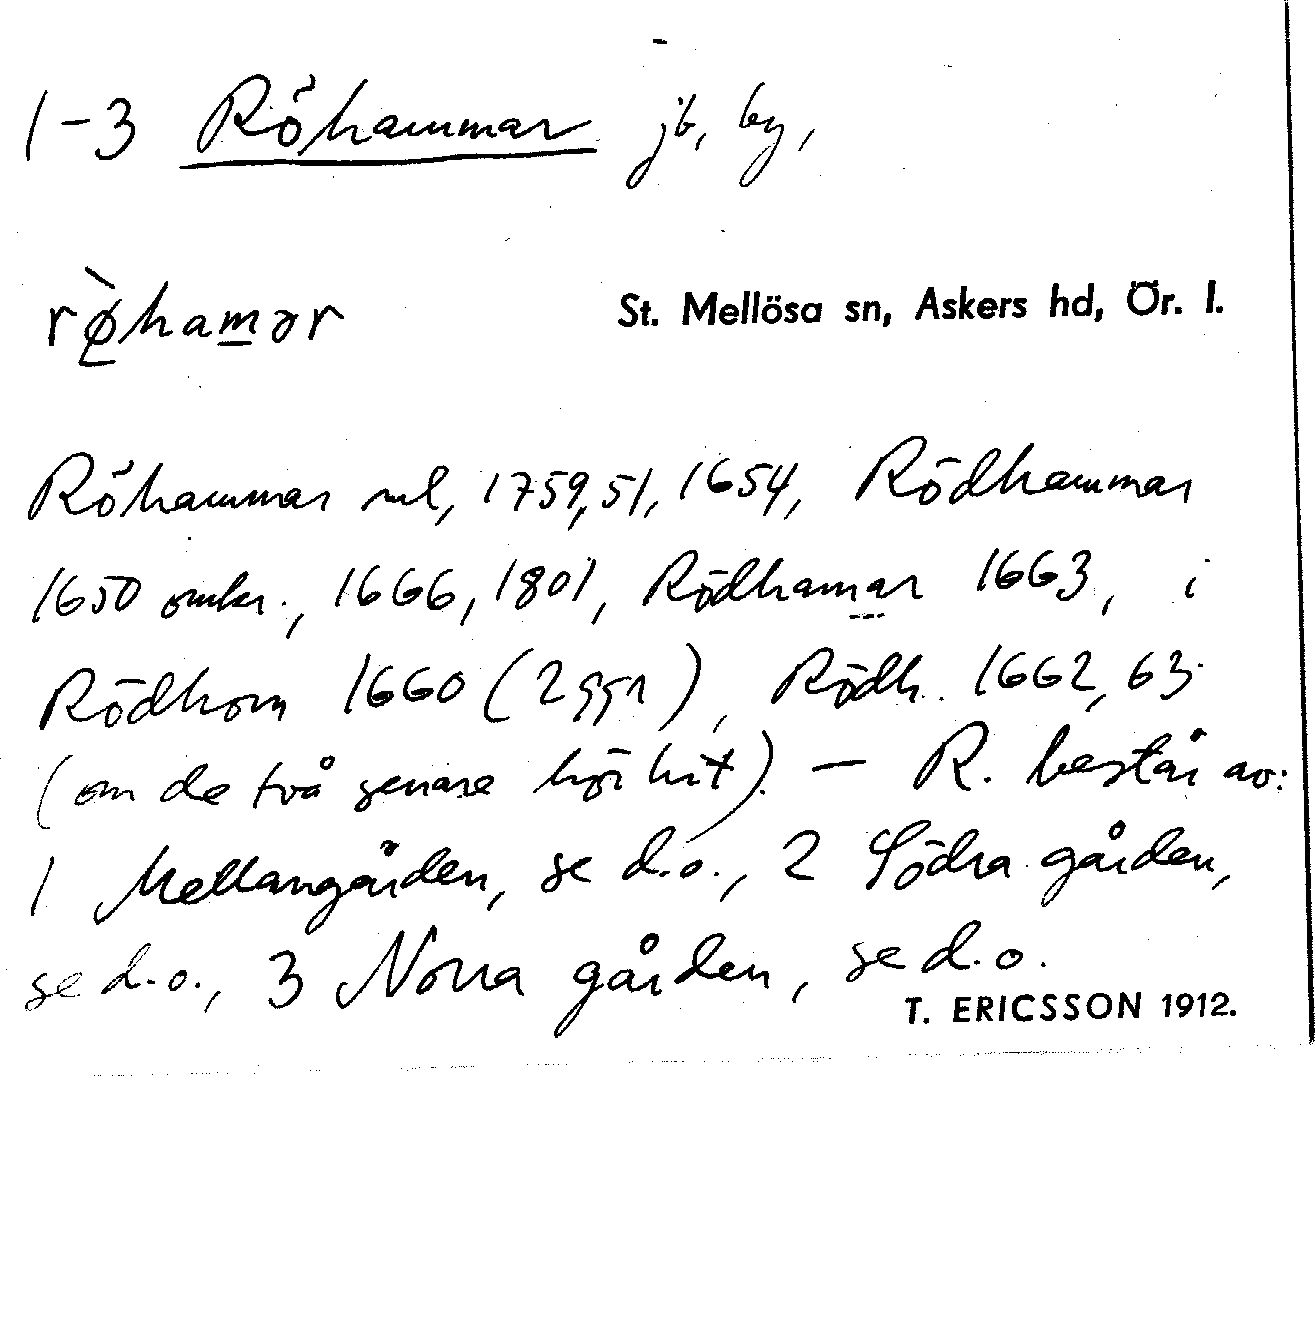 1-3 Röhammar jb, by,
rø̀hamər St. Mellösa sn, Askers hd, Ör. l.
Röhammar rul, 1759, 51, 1654, Rödhammar
1650 omkr., 1666, 1801, Rödhamar 1663, i
Rödhom 1660 (2 ggr), Rödh. 1662, 63
(om de två senare hör hit). — R. består av:
1 Mellangården, se d.o., 2 Södra gården,
se d.o., 3 Norra gården, se d.o.
T. ERICSSON 1912.